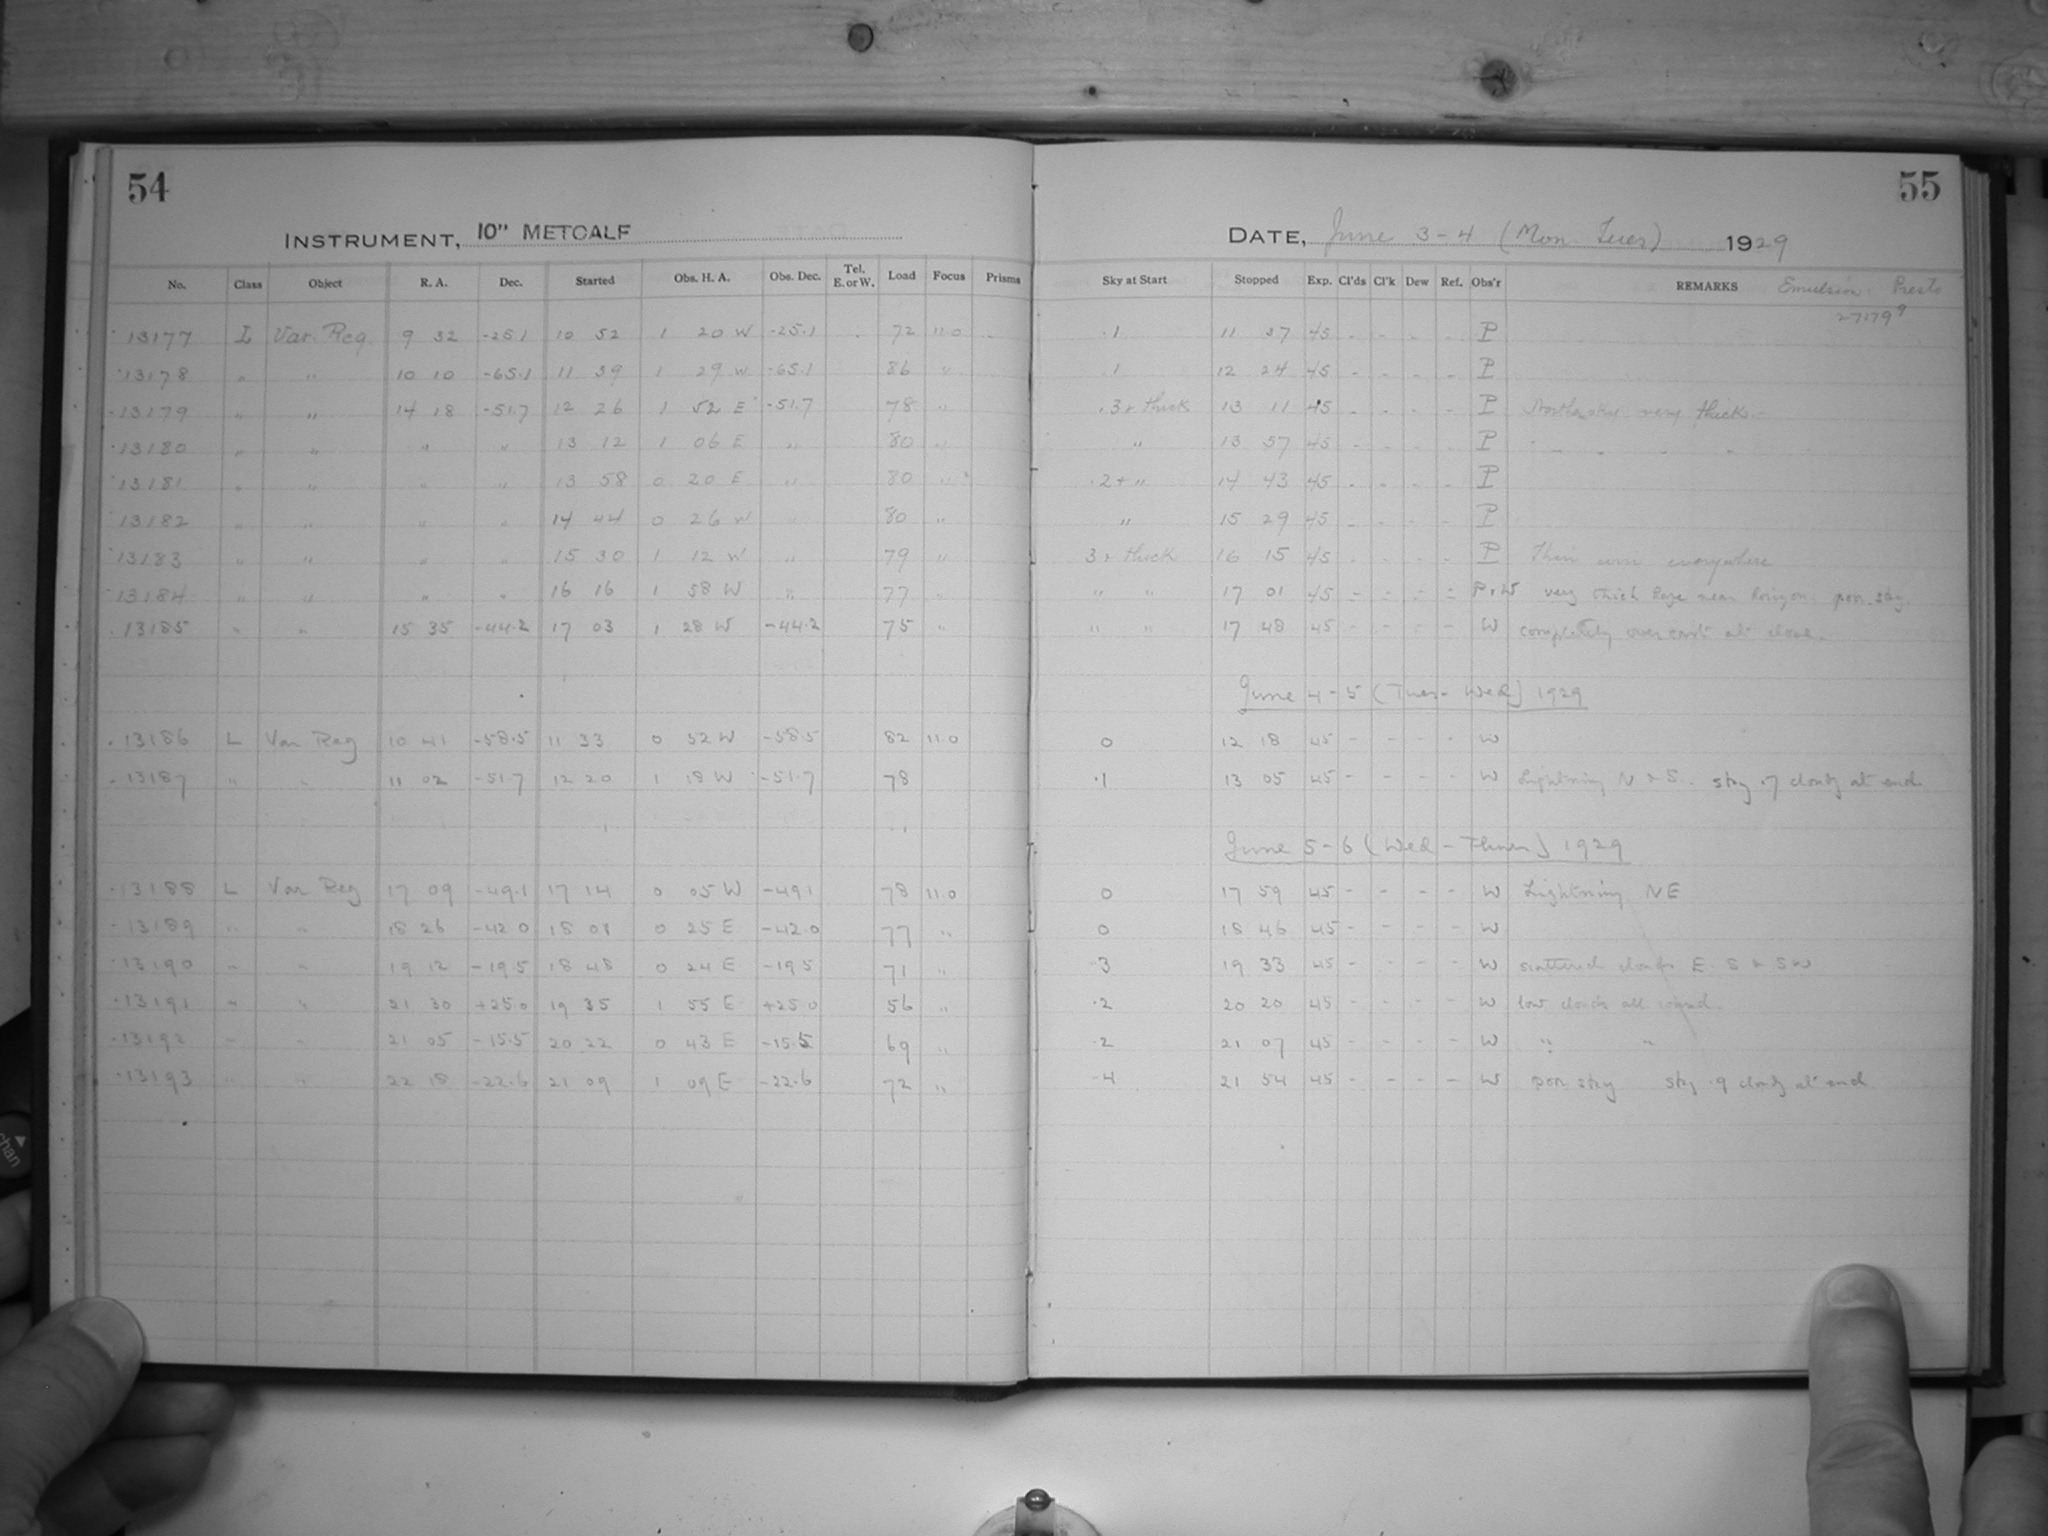 54
INSTRUMENT, 10" METCALF
No. Class Object R. A. Dec. Started Obs. H. A. Obs. Dec. Tel. E. or W. Load Focus Prisms
13177 L Var. Reg. 9 32 -25.1 10 52 1 20 W -25.1 72 11.0
13178 " " 10 10 -65.1 11 39 1 29 W -65.1 86 "
13179 " " 14 18 -51.7 12 26 1 52 E -51.7 78 "
13180 " " " " 13 12 1 06 E " 80 "
13181 " " " " 13 58 0 20 E " 80 "
13182 " " " " 14 44 0 26 W " 80 "
13183 " " " " 15 30 1 12 W " 79 "
13184 " " " " 16 16 1 58 W " 77 "
13185 " " 15 35 -44.2 17 03 1 28 W -44.2 75 "
13186 L Var Reg 10 41 -58.5 11 33 0 52 W -58.5 82 11.0
13187 " " 11 02 -51.7 12 20 1 18 W -51.7 78
13188 L Var Reg 17 09 -49.1 17 14 0 05 W -49.1 78 11.0
13189 " " 18 26 -42.0 18 01 0 25 E -42.0 77 "
13190 " " 19 12 -19.5 18 48 0 24 E -19.5 71 "
13191 " " 21 30 +25.0 19 35 1 55 E +25.0 56 "
13192 " " 21 05 -15.5 20 22 0 43 E -15.5 69 "
13193 " " 22 18 -22.6 21 09 1 09 E -22.6 72 "
55
DATE, June 3-4 (Mon. Tues) 1929
Sky at Start Stopped Exp. Cl'ds Cl'k Dew Ref. Obs'r REMARKS Emulsion Presto
27179
.1 11 37 45 - - - - P
.1 12 24 45 - - - - P
.3+ thick 13 11 45 - - - - P North sky very thick.
" 13 57 45 - - - - P " " " "
.2+ " 14 43 45 - - - - P
" 15 29 45 - - - - P
3+ thick 16 15 45 - - - - P Thin everywhere
" " 17 01 45 - - - - P+W very thick haze near horizon. poor sky.
" " 17 48 45 - - - - W completely overcast at close.
June 4-5 (Tues - Wed) 1929
0 12 18 45 - - - - W
.1 13 05 45 - - - - W Lightning N & S. sky .7 cloudy at end
June 5-6 (Wed - Thurs) 1929
0 17 59 45 - - - - W Lightning NE
0 18 46 45 - - - - W
.3 19 33 45 - - - - W scattered clouds E. S & SW
.2 20 20 45 - - - - W low clouds all round
.2 21 07 45 - - - - W " "
.4 21 54 45 - - - - W poor sky sky .9 cloudy at end